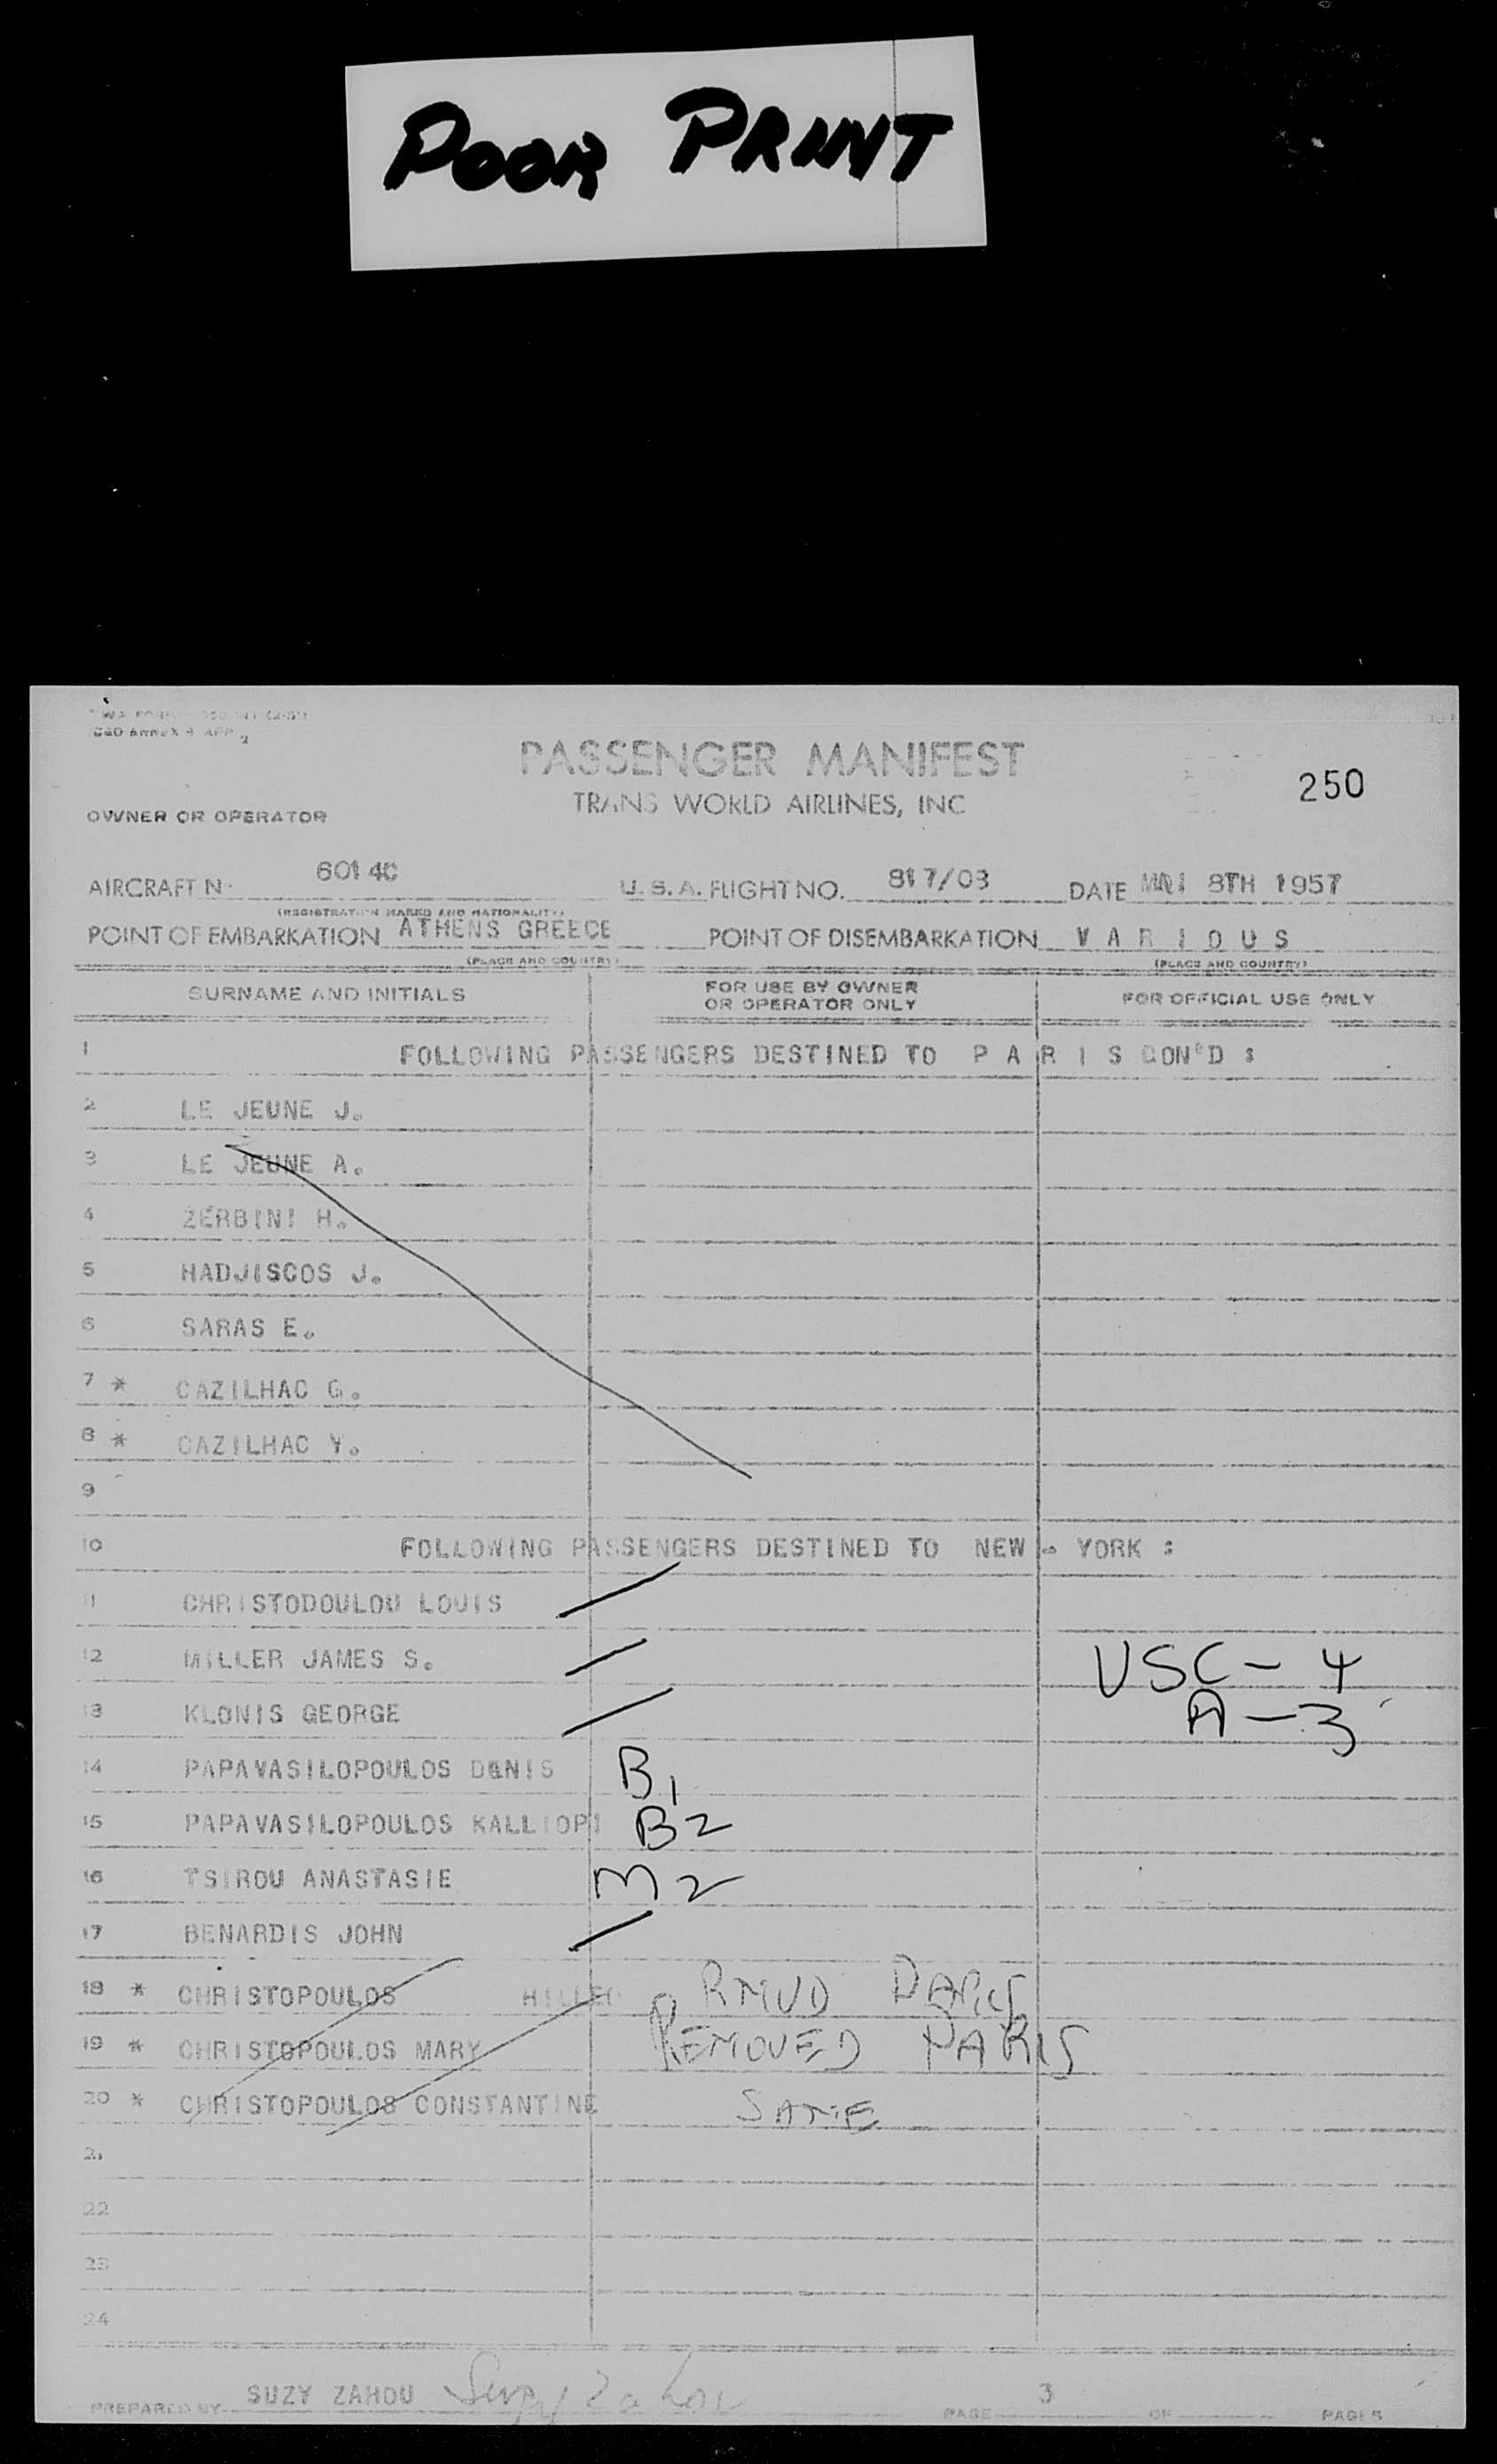 POOR PRINT
PASSENGER MANIFEST
250
TRANS WORLD AIRLINES, INC
OWNER OR OPERATOR
AIRCRAFT N 6014C U.S.A. FLIGHT NO. 817/03 DATE 8TH 1957
(REGISTRATION MARKS AND NATIONALITY)
POINT OF EMBARKATION ATHENS GREECE POINT OF DISEMBARKATION V A R I O U S
(PLACE AND COUNTRY) (PLACE AND COUNTRY)
SURNAME AND INITIALS FOR USE BY OWNER OR OPERATOR ONLY FOR OFFICIAL USE ONLY
1 FOLLOWING PASSENGERS DESTINED TO P A R I S CON'D :
2 LE JEUNE J.
3 LE JEUNE A.
4 ZERBINI H.
5 HADJISCOS J.
6 SARAS E.
7 * CAZILHAC G.
8 * CAZILHAC Y.
9
10 FOLLOWING PASSENGERS DESTINED TO NEW - YORK :
11 CHRISTODOULOU LOUIS
12 MILLER JAMES S. USC - 4
13 KLONIS GEORGE A - 3
14 PAPAVASILOPOULOS DENIS B1
15 PAPAVASILOPOULOS KALLIOPI B2
16 TSIROU ANASTASIE M2
17 BENARDIS JOHN
18 * CHRISTOPOULOS RMVD PARIS
19 * CHRISTOPOULOS MARY REMOVED PARIS
20 * CHRISTOPOULOS CONSTANTINE SAME
21
22
23
24
PREPARED BY SUZY ZAHOU Suzy Zahou PAGE 3 OF PAGES